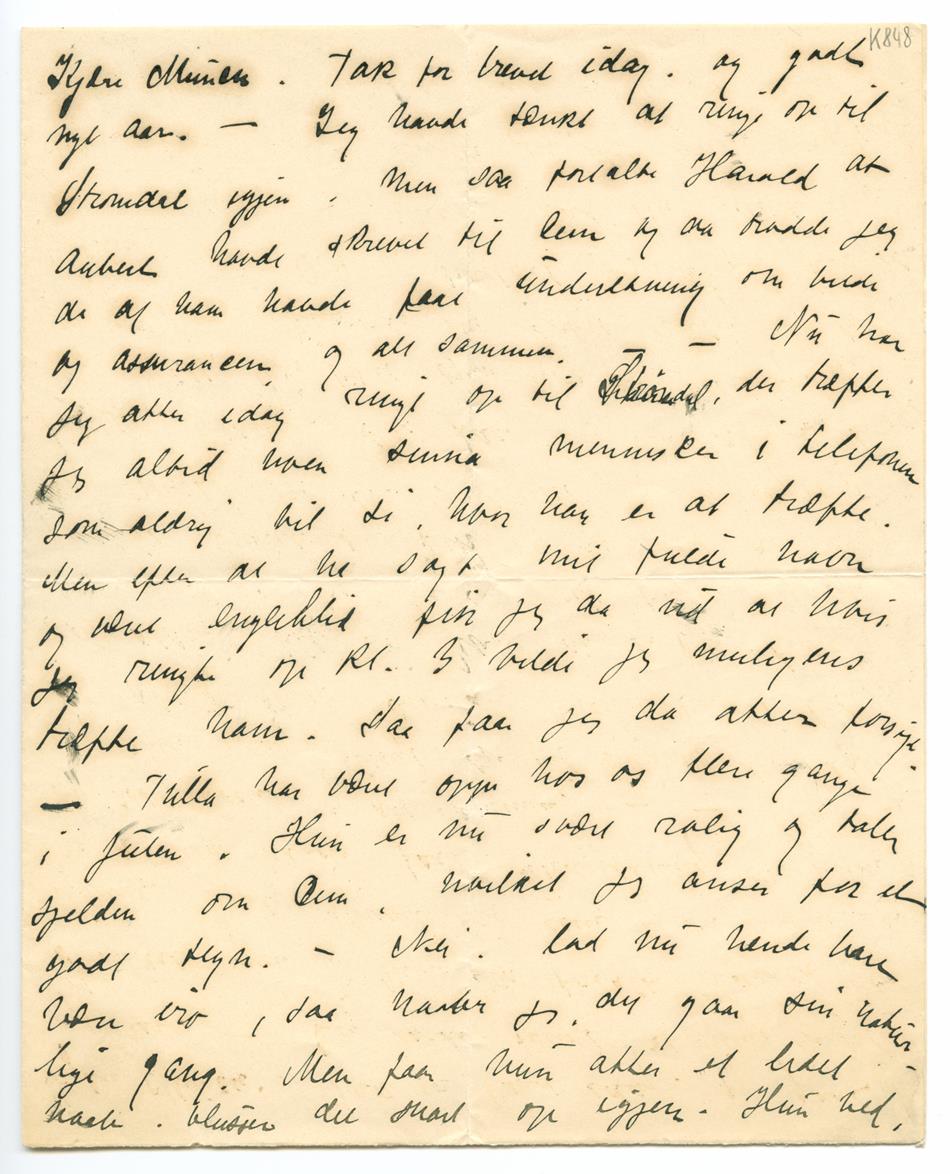 K848
Kjære Munch. Tak for brevet idag. og godt
nyt aar. — Jeg havde tænkt at ringe op til
Stromdal igjen, men saa fortalte Harald at
Aubert havde skrevet til Dem og da trodde jeg
de af ham havde faat underretning om bilde
og assurancen og alt sammen. — — Nu har
jeg atter idag ringt op til Strømdal, der træffer
jeg altid noen sinna mennesker i telefonen
som aldrig vil si, hvor han er at træffe.
Men efter at ha sagt mit fulde navn
og være engleblid fik jeg da vite at hvis
jeg ringte op kl. 3 vilde jeg muligens
træffe ham. Saa faar jeg da atter forsøge.
— Tulla har været oppe hos os flere gange
i julen. Hun er nu svært rolig og taler
sjelden om Dem, hvilket jeg anser for et
godt tegn. — Nei. lad nu hende bare
være i ro, saa haaber jeg, det gaar sin natur-
lige gang. Men faar hun atter et lidet
haab. blusser det snart op igjen. Hun ved,